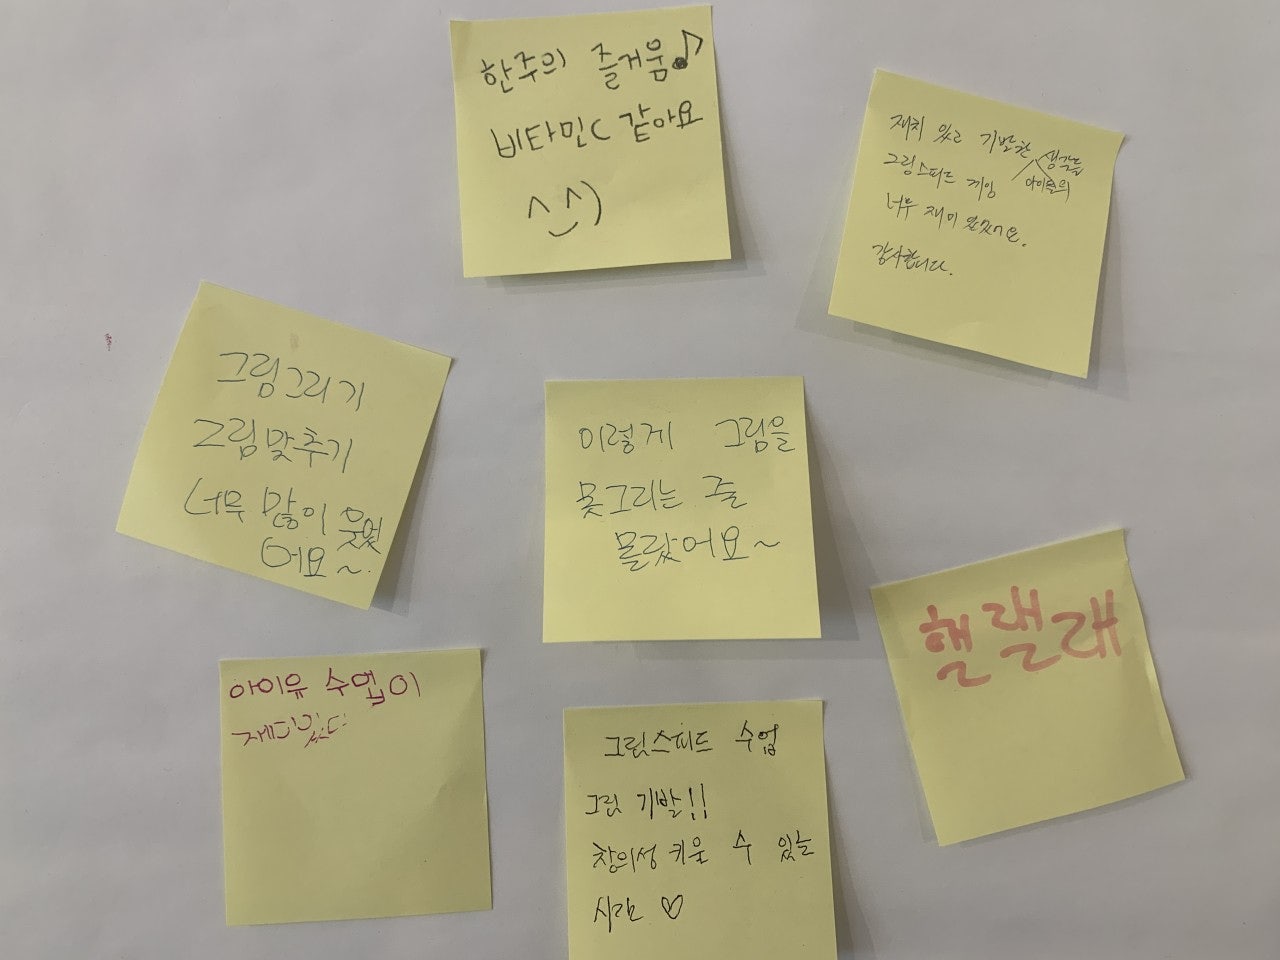 한주의 즐거움♪
비타민C 같아요
^‿^)
재치 있고 기발한 아이들의 생각들
그림스피드 게임
너무 재미 있었어요.
감사합니다.
그림그리기
그림맞추기
너무 많이 웃었
어요~.
이렇게 그림을
못그리는 줄
몰랐어요~
핼랠래
아이유 수업이
재미있다
그림스피드 수업
그림 기발!!
창의성 키울 수 있는
시간 ♡